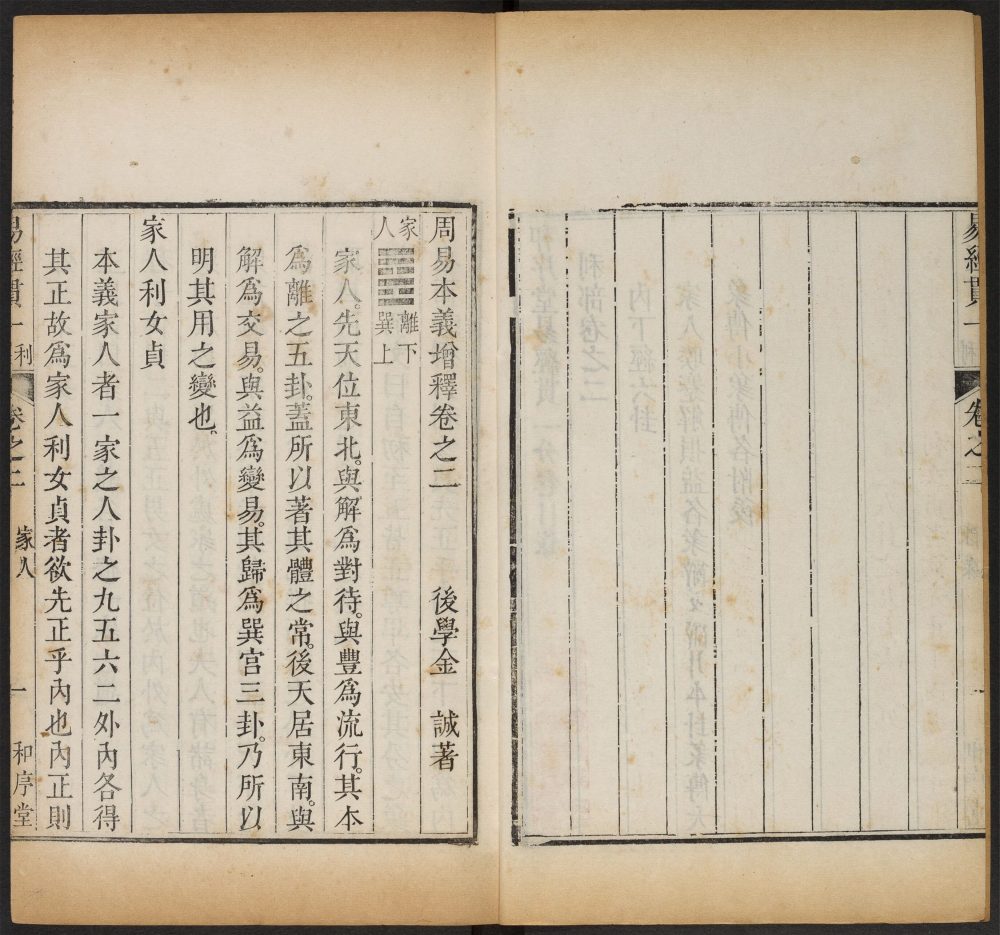 易經貫一
利
卷之二
周易本義增釋卷之二 後學金 誠著
家人
離下
巽上
家人。先天位東北。與解爲對待。與豐爲流行。其本
爲離之五卦。蓋所以著其體之常。後天居東南。與
解爲交易。與益爲變易。其歸爲巽宮三卦。乃所以
明其用之變也。
家人利女貞
本義家人者一家之人卦之九五六二外內各得
其正故爲家人利女貞者欲先正乎內也內正則
易經貫一 利 卷之二 家人 一 和序堂